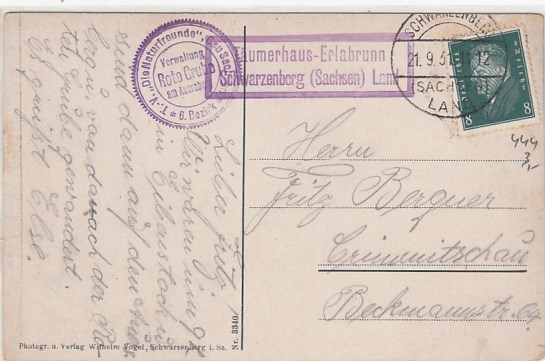 T.-V. „Die Naturfreunde“, Gau Sachsen
Verwaltung
Rote Grube
am Auersberg
6. Bezirk
äumerhaus-Erlabrunn
Schwarzenberg (Sachsen) Land
SCHWARZENBERG
21.9.31. 11-12
(SACHSEN)
LAND
8 8
444
3,-
Lieber Fritz
Wir fuhren um 9¼
in Eibenstock u.
sind dann auf den Auers-
berg u. danach der Ro-
ten Grube gewandert.
Es grüßt Else.
Herrn
Fritz Bergner
Crimmitschau
Beckmannstr.
Photogr. u. Verlag Wilhelm Vogel, Schwarzenberg i. Sa.
Nr. 3340